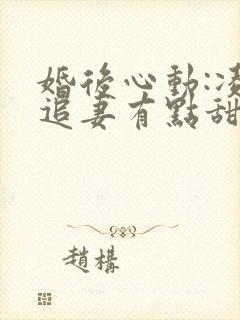 婚後心動:凌
追妻有點甜
趙構